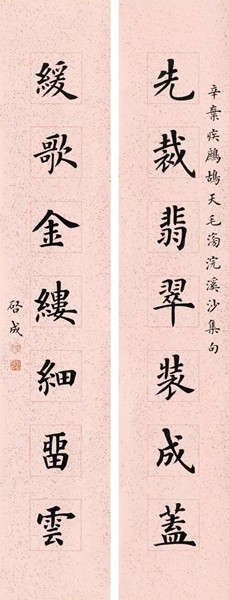 辛棄疾鷓鴣天毛滂浣溪沙集句
先裁翡翠裝成蓋
緩歌金縷細畱雲
啓成